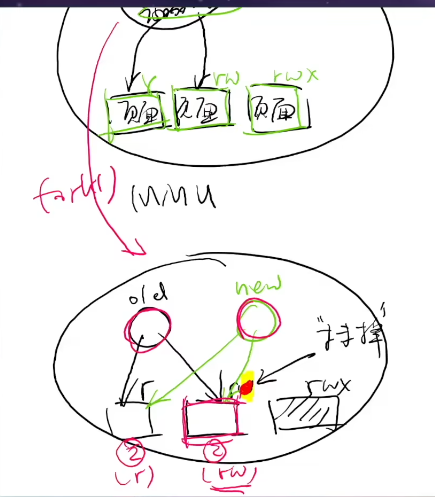 r rw rwx
页面 页面 页面
fork()
MMU
old new
r rwx
② ②
(r) (rw)